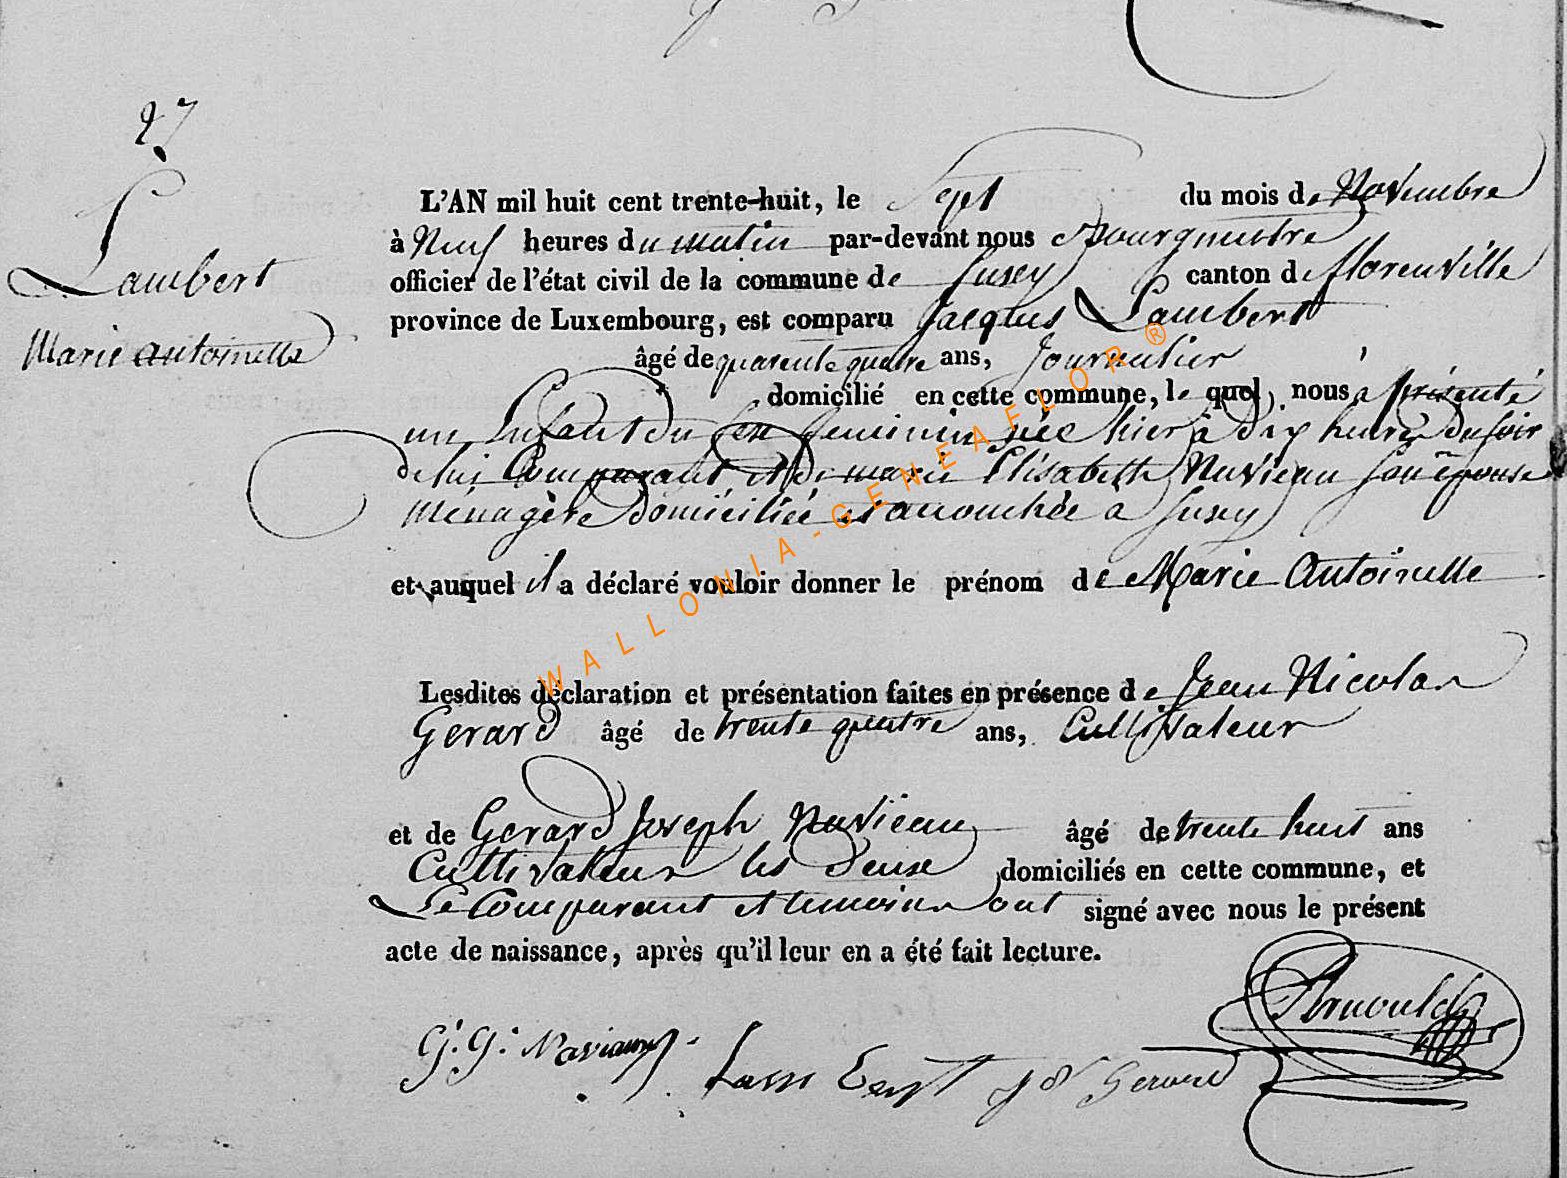 27
Lambert
Marie antoinette
L'AN mil huit cent trente-huit, le Sept du mois de Novembre
à Neuf heures du matin par-devant nous Bourgmestre
officier de l'état civil de la commune de Suxey canton de florenville
province de Luxembourg, est comparu Jacques Lambert
âgé de quarente quatre ans, Journalier
domicilié en cette commune, le quel, nous a présenté
un Enfant du sexe feminin née hier à dix heures du soir
de lui Comparant et de marie Elisabeth Navieau son épouse
Ménagère domiciliée et accouchée à Suxey
et auquel il a déclaré vouloir donner le prénom de Marie Antoinette
Lesdites déclaration et présentation faites en présence de Jean Nicolas
Gerard âgé de trente quatre ans, Cultivateur
et de Gerard Joseph Navieau âgé de trente huit ans
Cultivateur les deux domiciliés en cette commune, et
Le Comparant et temoins ont signé avec nous le présent
acte de naissance, après qu'il leur en a été fait lecture.
Arnould
G. G. Naviaux
Gerard
WALLONIA-GENEAFLOR®